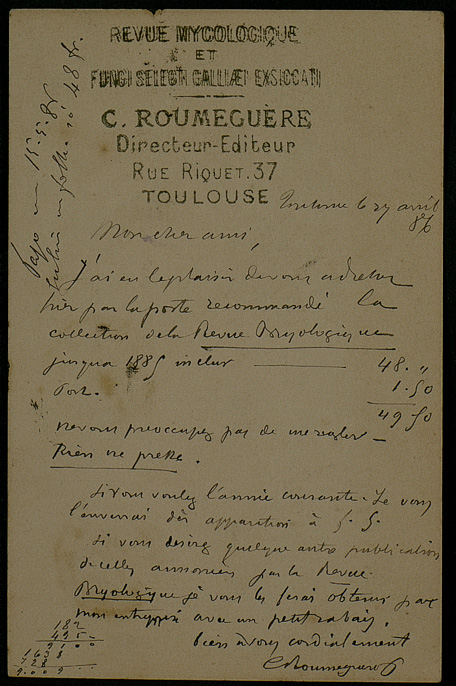 REVUE MYCOLOGIQUE
ET
FUNGI SELECTI GALLIÆI EXSICCATI
C. ROUMEGUÈRE
Directeur-Editeur
RUE RIQUET. 37
TOULOUSE
Toulouse le 27 avril
86
Mon cher ami,
J'ai eu le plaisir de vous adresser
hier par la poste recommandé la
collection de la Revue Bryologique
jusqua 1885 inclus 48. "
Port. 1.50
49 50
ne vous preoccupez pas de me regler
Rien ne presse.
Si vous voulez l'année courante. Je vous
l'enverrai dès apparition à
Si vous desirez quelque autre publication
de celles annoncées par la Revue
Bryologique je vous les ferai obtenir par
mon entremise avec un petit rabais.
bien à vous cordialement
C Roumeguère
Payé 15.5.86
48 fr.
182
495
9100
1638
728